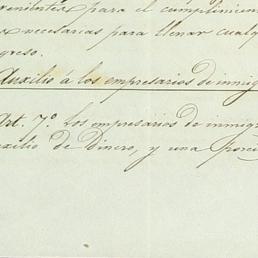 venientes para el cumplimien
s necesarias para llenar cualq
greso.
Auxilio á los empresarios de inmig
Art. 7º. Los empresarios de inmigr
uxilio de Dinero, y una porci